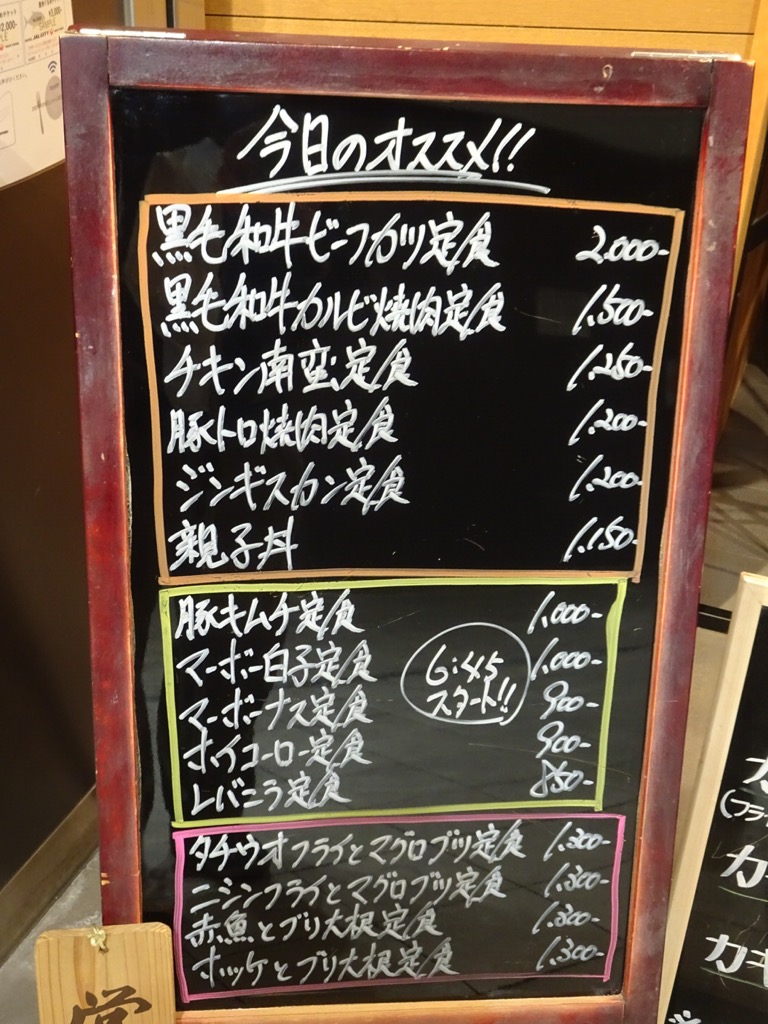 今日のオススメ!!
黒毛和牛ビーフカツ定食 2.000-
黒毛和牛カルビ焼肉定食 1.500-
チキン南蛮定食 1.250-
豚トロ焼肉定食 1.200-
ジンギスカン定食 1.200-
親子丼 1.150-
豚キムチ定食 1.000-
マーボー白子定食 1.000-
マーボーナス定食 900-
ホイコーロー定食 900-
レバニラ定食 850-
6:45
スタート!!
タチウオフライとマグロブツ定食 1.300-
ニシンフライとマグロブツ定食 1.300-
赤魚とブリ大根定食 1.300-
ホッケとブリ大根定食 1.300-